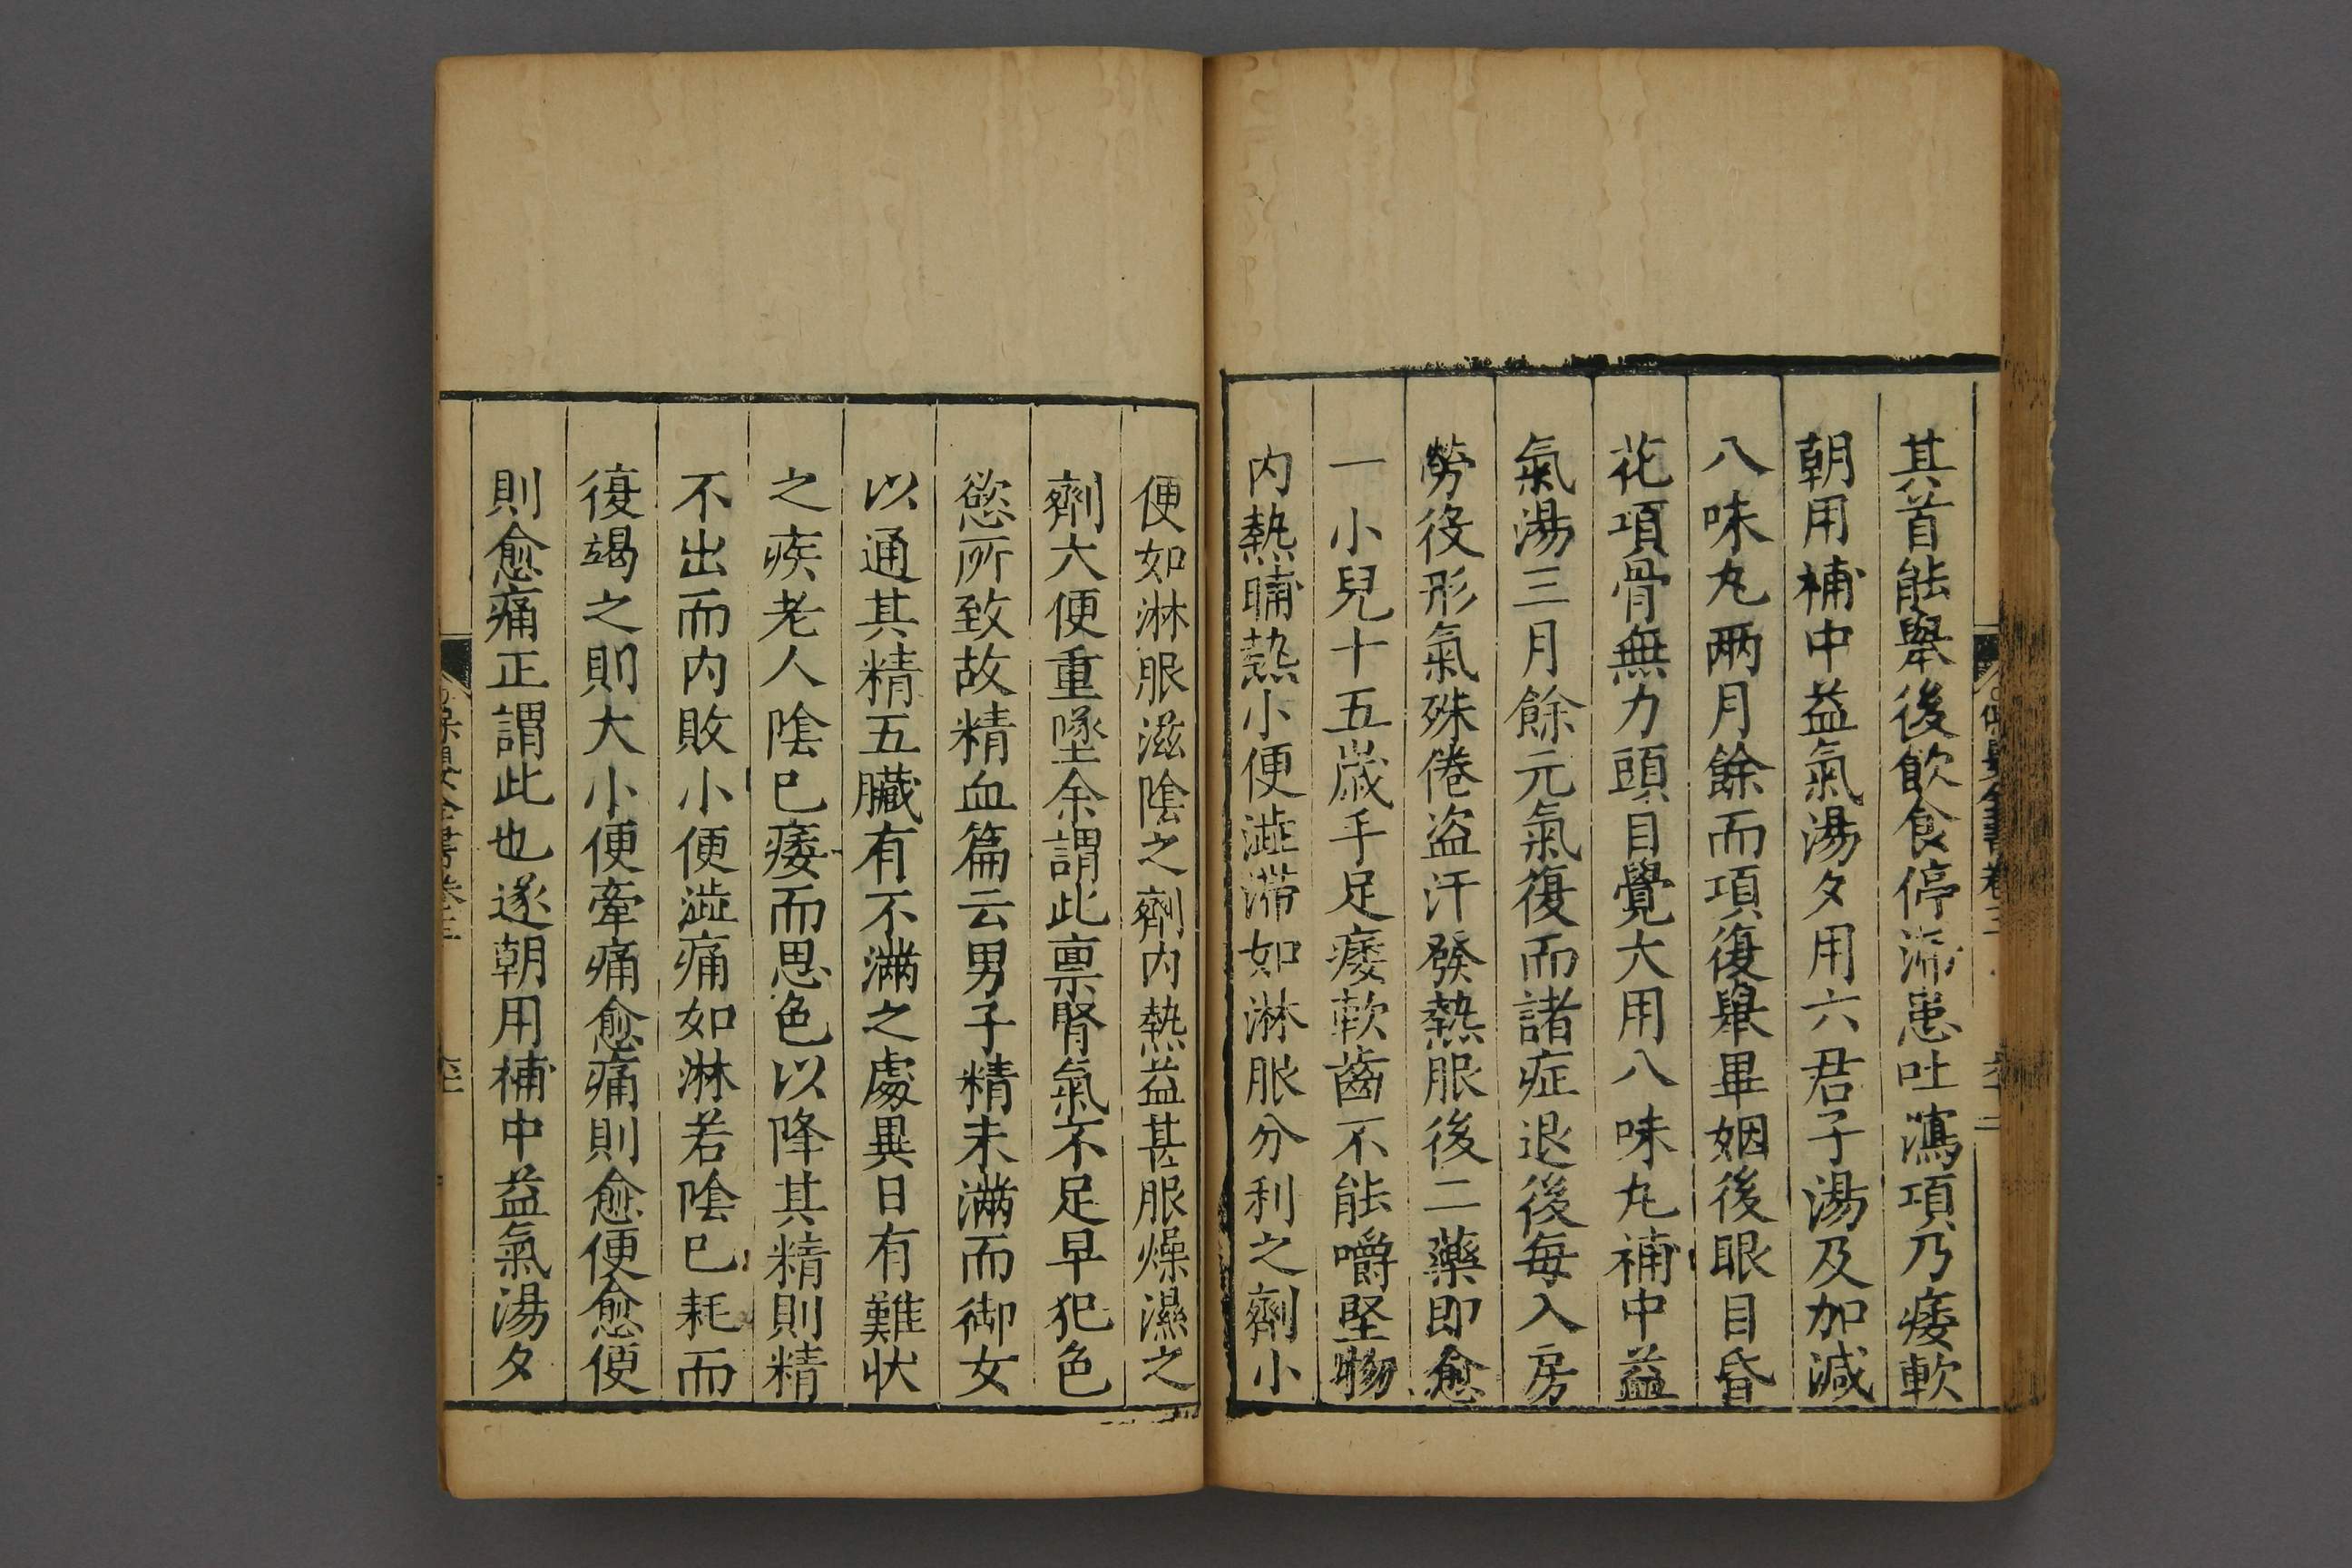 其首能舉後飲食停滯患吐瀉項乃痿軟
朝用補中益氣湯夕用六君子湯及加減
八味丸兩月餘而項復舉畢姻後眼目昏
花項骨無力頭目覺大用八味丸補中益
氣湯三月餘元氣復而諸症退後每入房
勞役形氣殊倦盗汗發熱服後二藥即愈
一小兒十五歲手足痿軟齒不能嚼堅物
内熱晡熱小便澁滯如淋服分利之劑小
便如淋服滋陰之劑内熱益甚服燥濕之
劑大便重墜余謂此禀腎氣不足早犯色
慾所致故精血篇云男子精未滿而御女
以通其精五臟有不滿之處異日有難狀
之疾老人陰已痿而思色以降其精則精
不出而内敗小便澁痛如淋若陰已耗而
復竭之則大小便牽痛愈痛則愈便愈便
則愈痛正謂此也遂朝用補中益氣湯夕